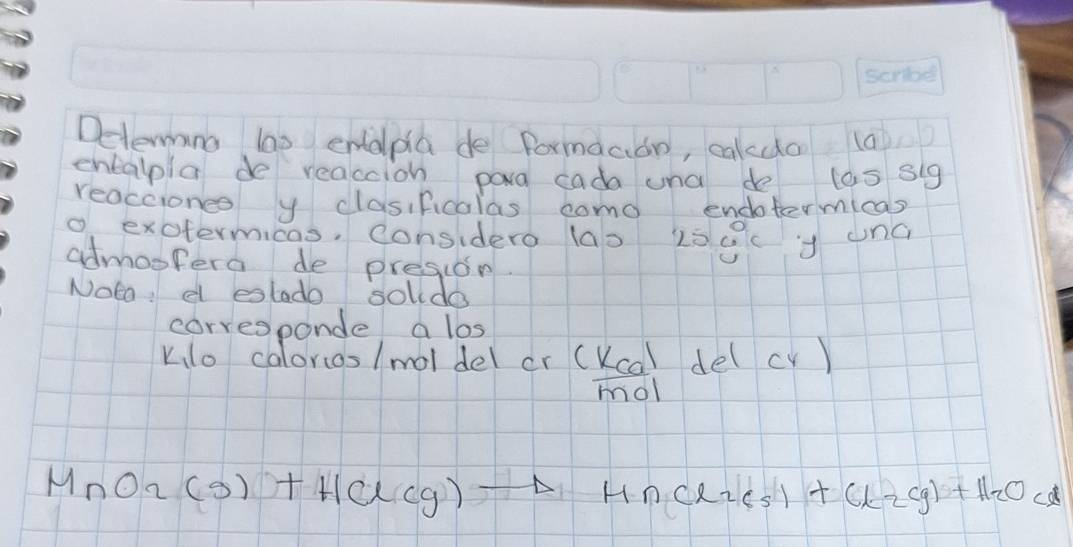 Scribe
Determina las entalpia de formación, calcula la
entalpia de reaccion para cada una de las sig
reacciones y clasificalas como endotermicas
o exotermicas. Considera las 25 °C y una
admosfera de presión.
Nota: el estado solido
corresponde a los
Kilo calorias/mol del cr (Kcal/mol del cr)
MnO2 (s) + HCl (g) → MnCl2 (s) + Cl2 (g) + H2O (l)